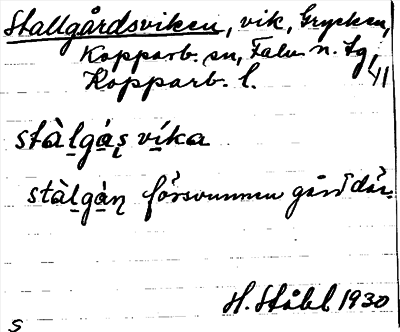 Stallgårdsviken, vik, Grycken,
Kopparb. sn, Falu n. tg,
Kopparb. l. 41
stàl̠gá̠ş ví̠ka
stàl̠gà̠ņ försvunnen gård där.
H. Ståhl 1930
S